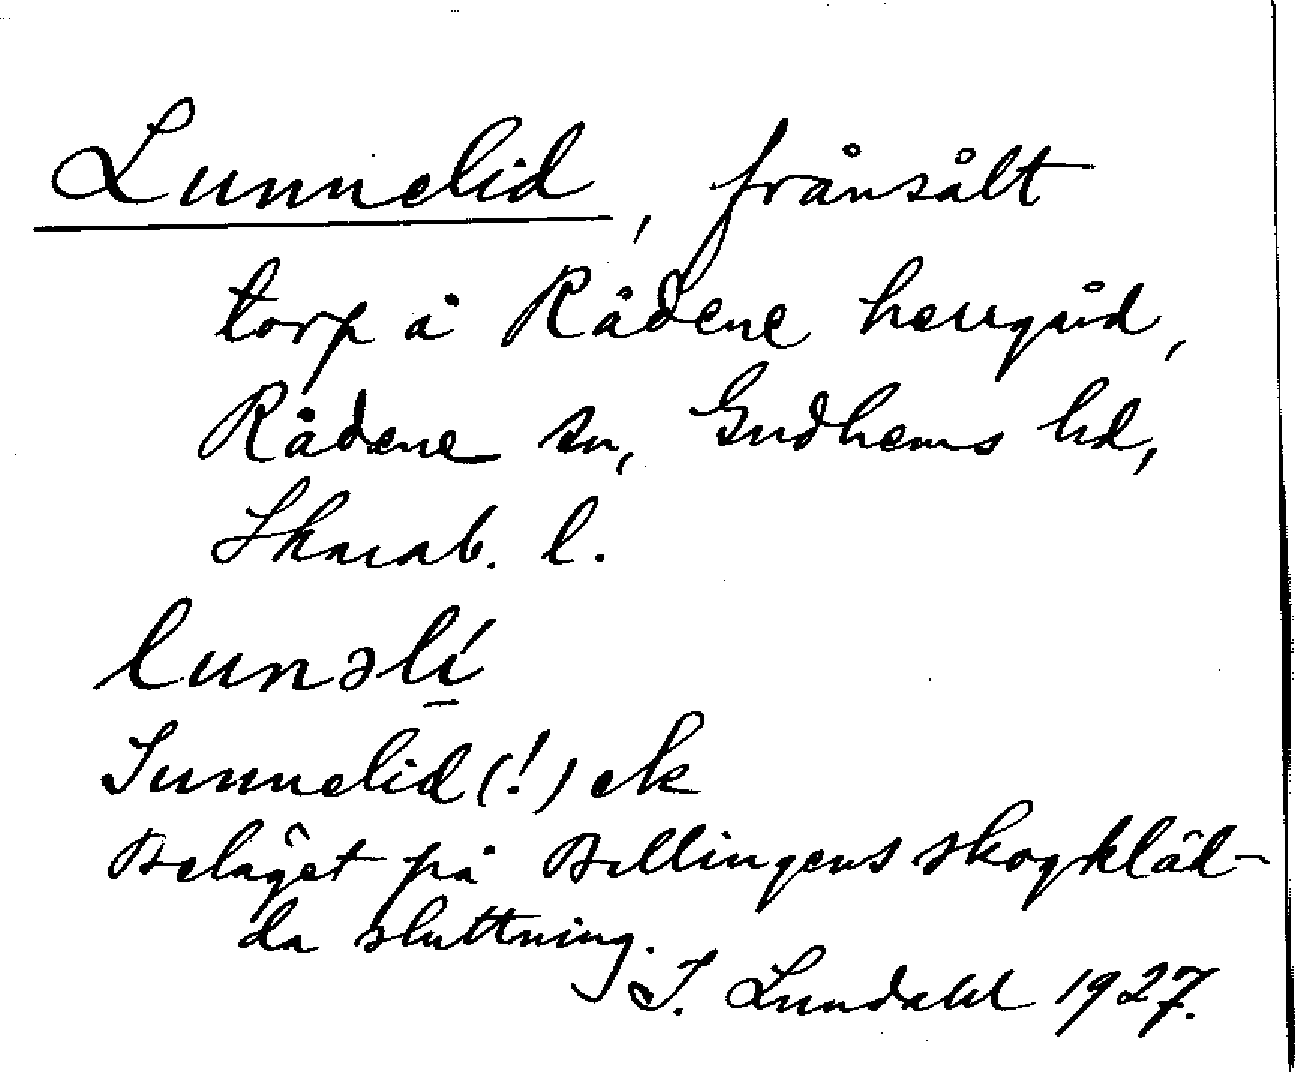 Lunnelid, frånsålt
torp å Rådene herrgård,
Rådene sn, Gudhems hd,
Skarab. l.
lunəlí
Sunnelid (!) ek
Beläget på Billingens skogkläd-
da sluttning.
I. Lundahl 1927.